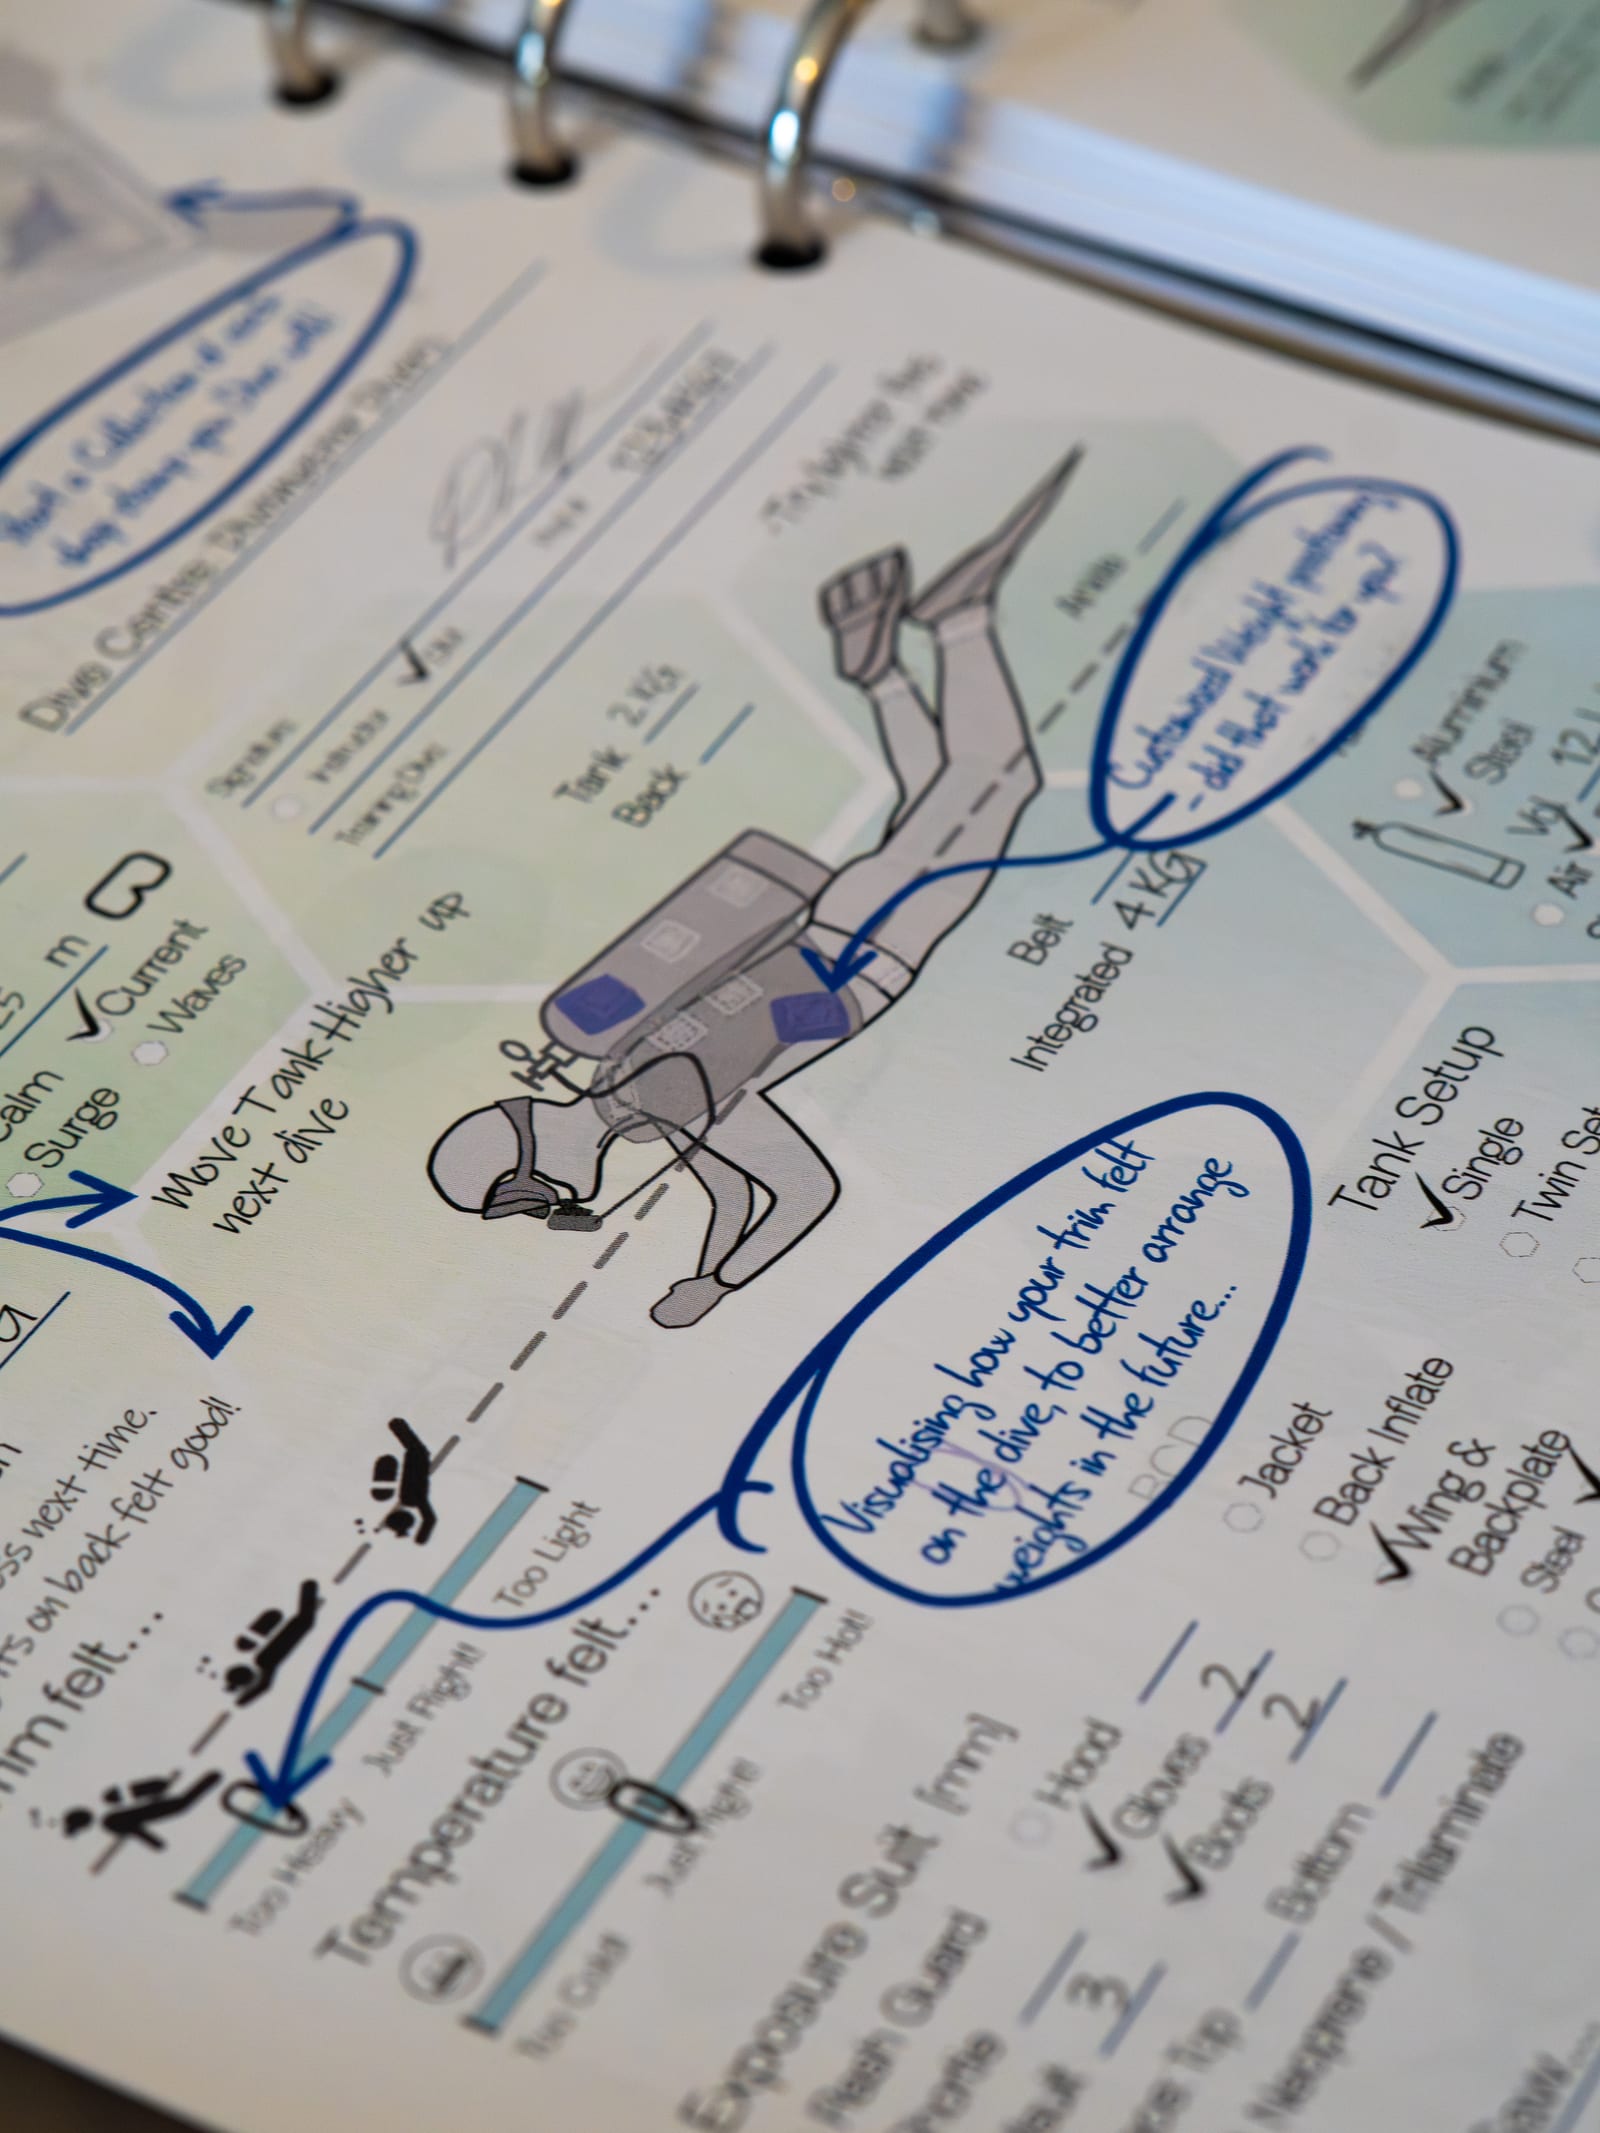 Start a Collection of
you Dive with
Dive Centre:
Signature
Instructor
Training Dive
Try before this
next time
Tank 2 KG
Back
Ankle
Customised Weight positioning
- did that work for you?
Belt
Integrated 4 KG
Aluminium
Steel
Vol 12
Air
m
Current
Waves
Surge
Move Tank Higher up
next dive
Tank Setup
Single
Twin Set
Visualising how your trim felt
on the dive, to better arrange
weights in the future...
next time.
on back felt good!
felt...
Too Light
Just Right!
Too Heavy
Temperature felt...
Too Hot!
Just Right!
Too Cold
BCD
Jacket
Back Inflate
Wing &
Backplate
Steel
Exposure Suit [mm]
Hood
Gloves 2
Boots 2
Rash Guard
3
Bottom
Neoprene / Trilaminate